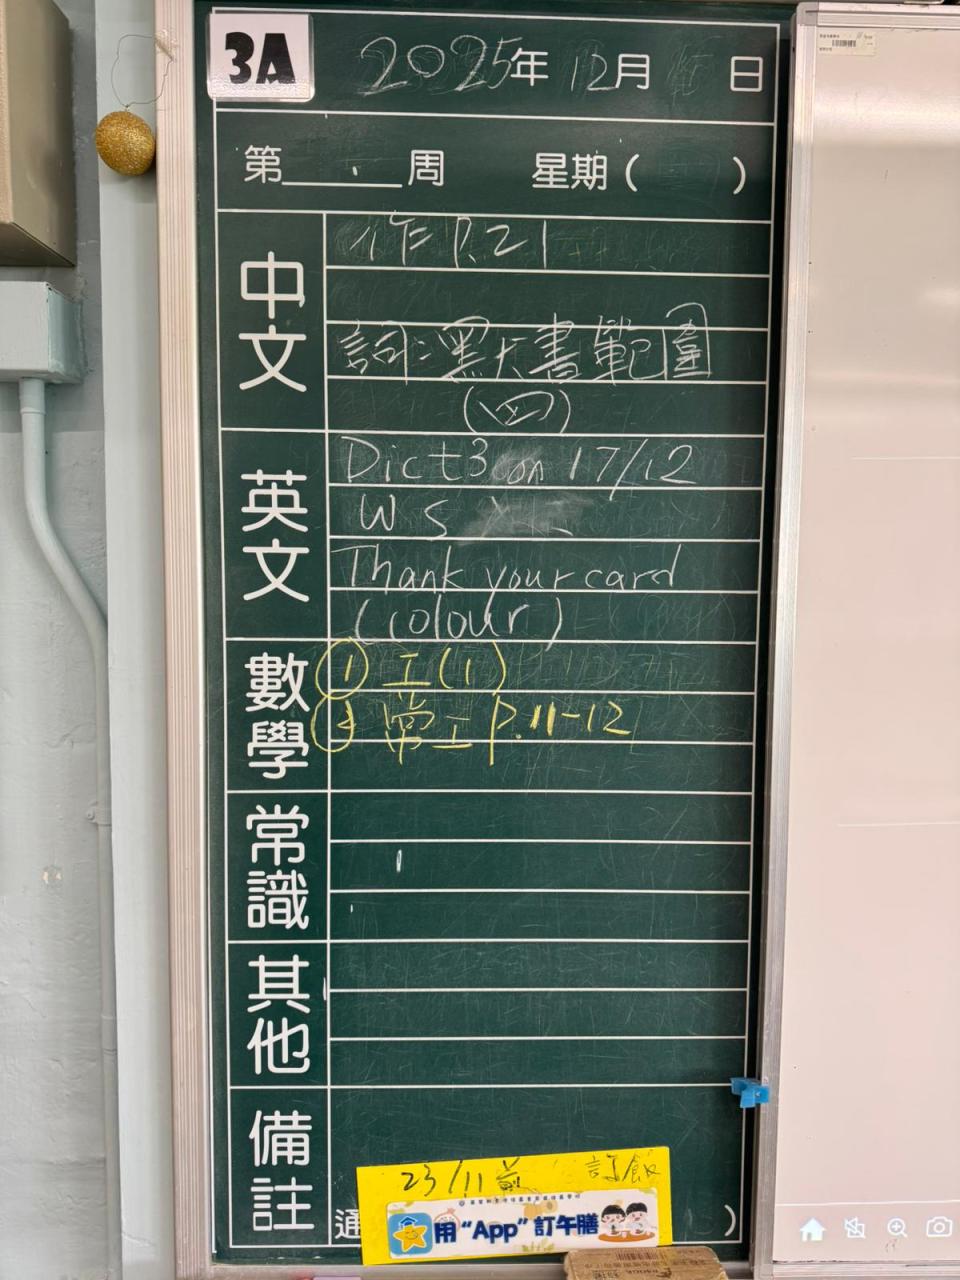 3A
2025年 12月 日
第 周 星期( )
中文
作 P.21
詞:默書範圍
(四)
英文
Dict 3 on 17/12
WS
Thank your card
(colour)
數學
① 工(1)
常工 P.11-12
常識
其他
備註
23/11前 訂飯
用“App”訂午膳
通 )